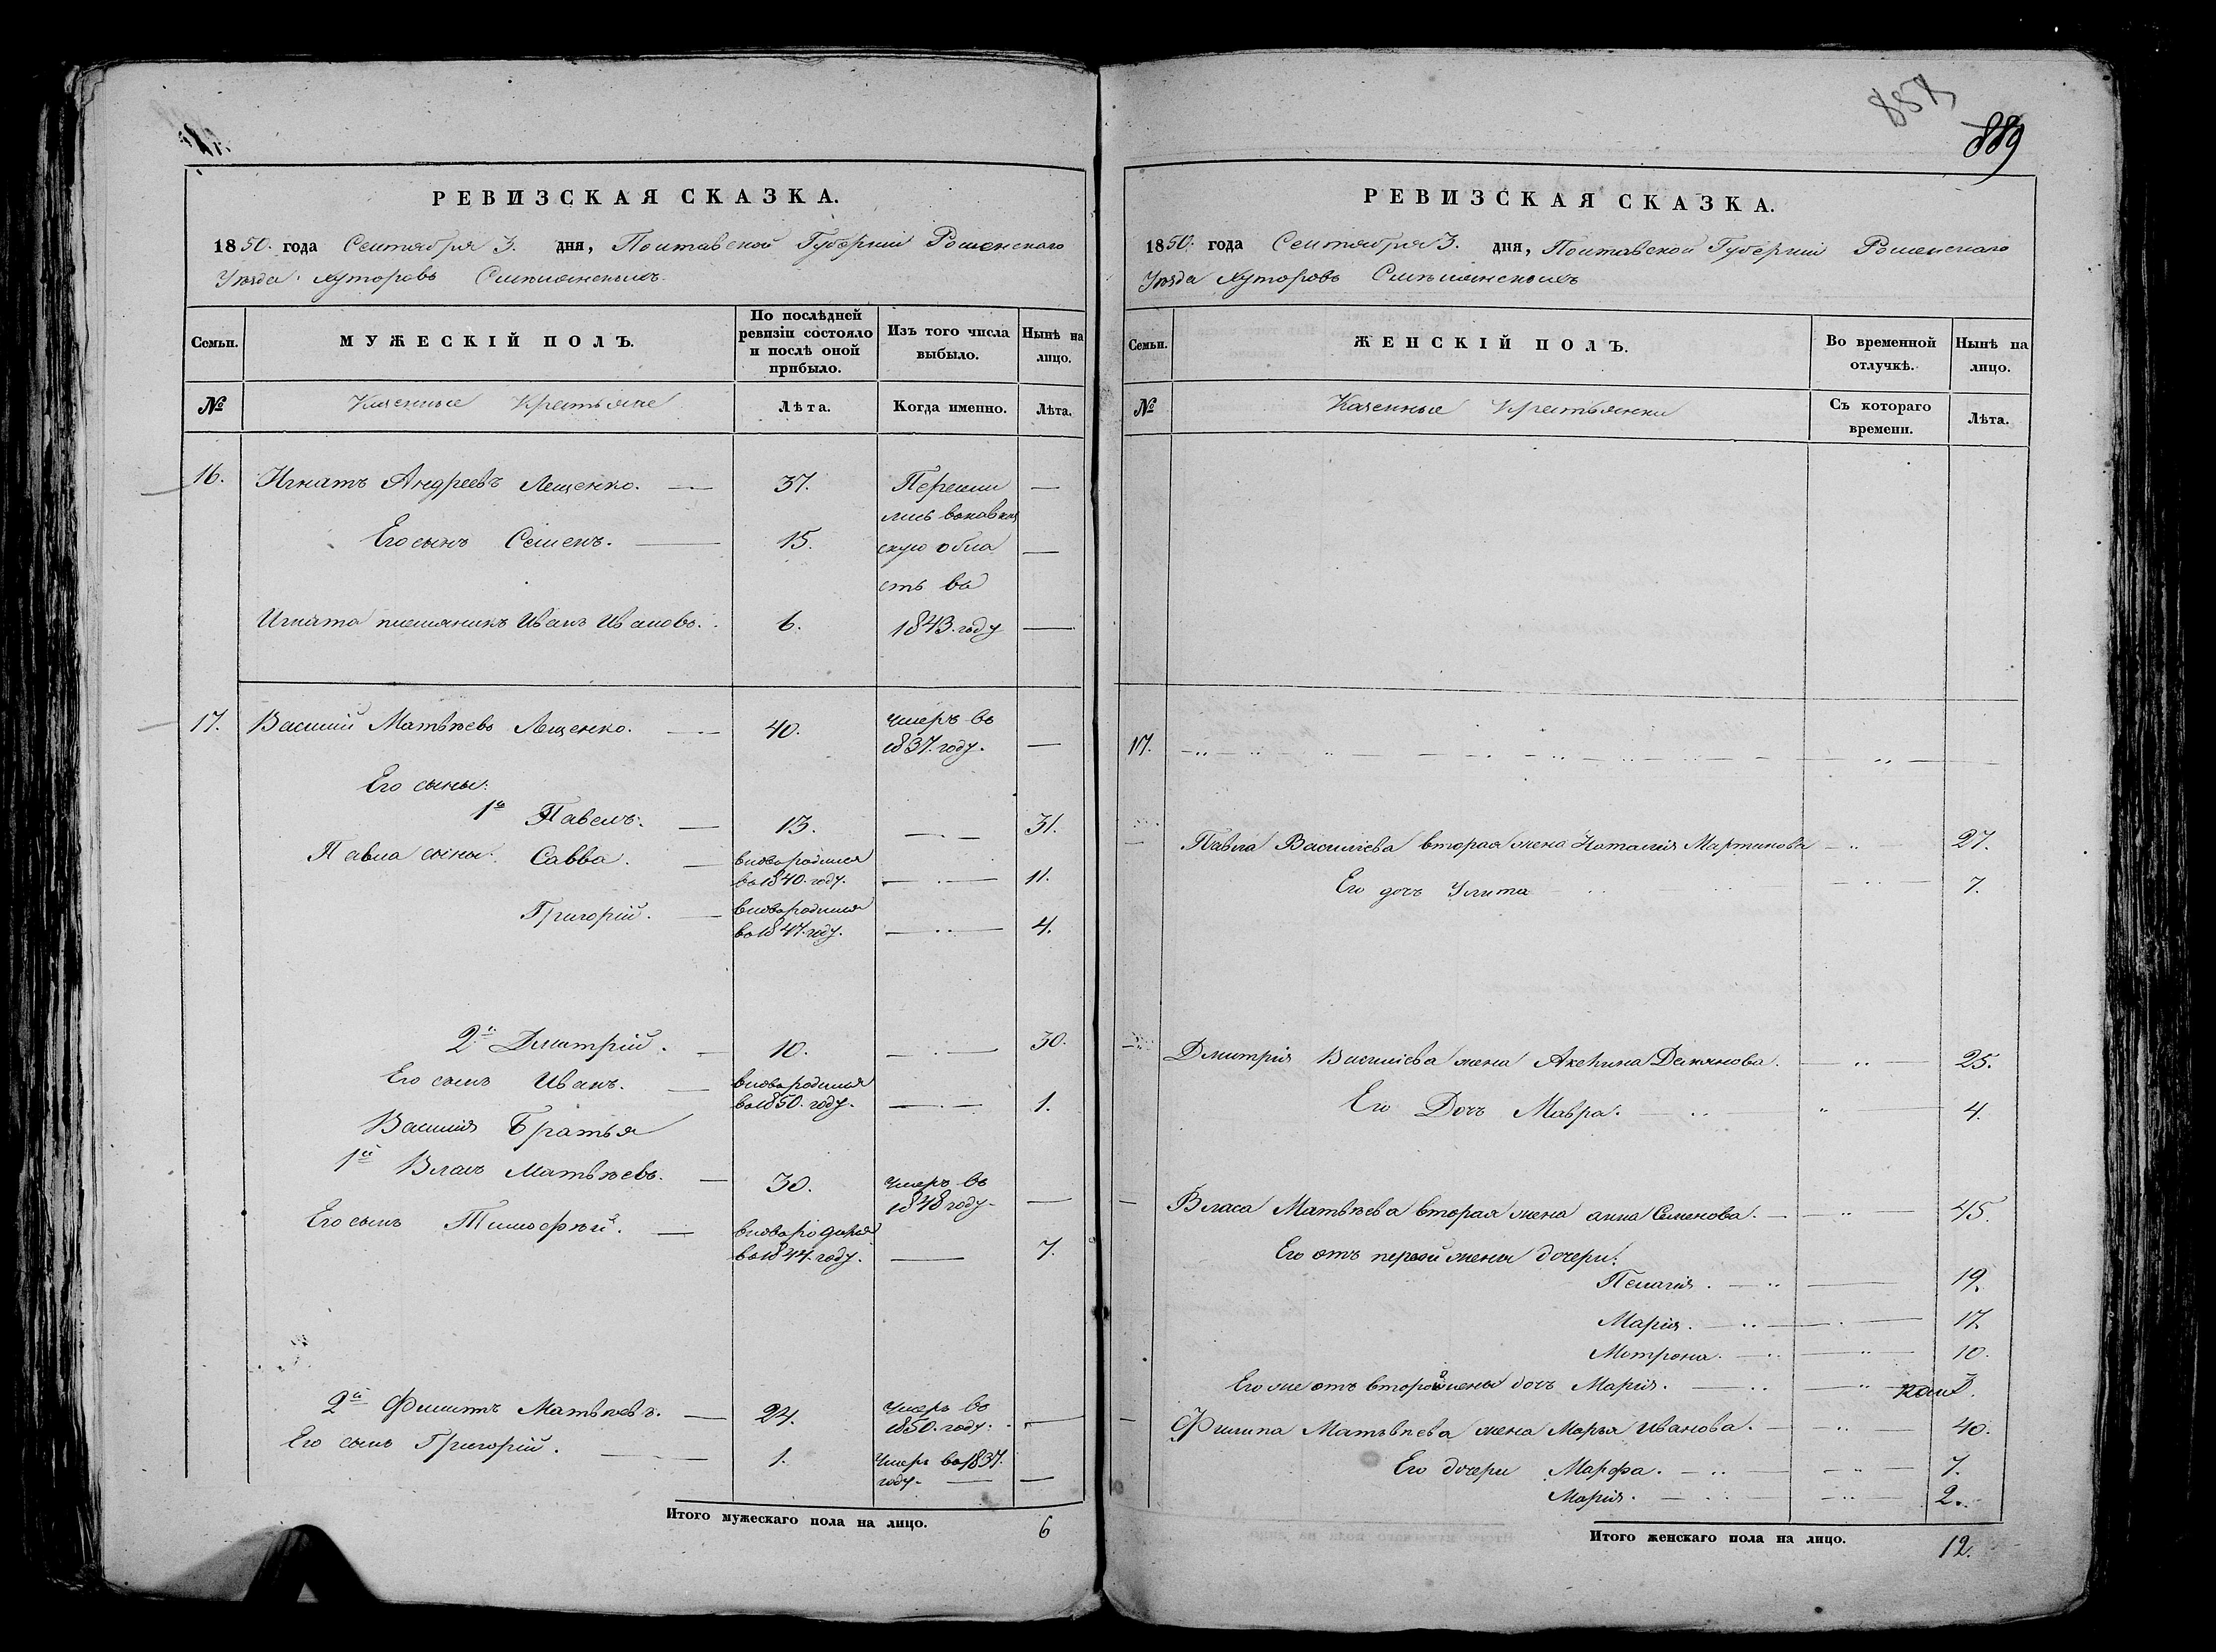 РЕВИЗСКАЯ СКАЗКА.
1850. года Сентября 3. дня, Полтавской Губерніи Роменскаго
Уѣзда хуторовъ
Семьи.
МУЖЕСКІЙ ПОЛЪ.
По послѣдней ревизіи состояло и послѣ оной прибыло.
Изъ того числа выбыло.
Нынѣ на лицо.
№
Казенные Крестьяне
Лѣта.
Когда именно.
Лѣта.
16. Игнатъ Андреевъ Лещенко. — 37. Пересели —
лись вкавказ
Его сынъ Семенъ. — 15. скую обла —
сть въ
Игната племяникъ Иванъ Ивановъ. 6. 1843. году —
17. Василий Матвѣевъ Лещенко. — 40. умеръ въ
1837. году. —
Его сыны:
1й Павелъ. — 13. — 31.
Павла сыны. Савва. — вновь родился
въ 1840. году. — 11.
Григорій. — вновь родился
въ 1847. году. — 4.
2й Дмитрій. — 10. — 30.
Его сынъ Иванъ. — вновь родился
въ 1850. году. — 1.
Василія Братья
1й Власъ Матвѣевъ. — 30. умеръ въ
1848 году. —
Его сынъ Тимофѣй. — вновь родился
въ 1844. году. — 7.
2й Филиппъ Матвѣевъ. — 24. умеръ въ
1850. году. —
Его сынъ Григорій. — 1. Умеръ въ 1837.
году. — —
Итого мужескаго пола на лицо. 6
858
889
РЕВИЗСКАЯ СКАЗКА.
1850. года Сентября 3. дня, Полтавской Губерніи Роменскаго
Уѣзда Хуторовъ
Семьи.
ЖЕНСКІЙ ПОЛЪ.
Во временной отлучкѣ.
Нынѣ на лицо.
№
Казенные Крестьянки
Съ котораго времени.
Лѣта.
17.
Павла Василіева вторая жена Наталия Мартинова — 27.
Его дочь Улита — 7.
Дмитрія Василіева жена Акси́на Демянова. — 25.
Его Дочь Мавра. — 4.
Власа Матвѣева вторая жена анна Семенова. — 45.
Его отъ первой жены дочери:
Пелагия. — 19.
Мария. — 17.
Мотрона. — 10.
Его же отъ второй жены дочь Мария. —
Филипа Матвѣева жена Марья Иванова. — 40.
Его дочери Марфа. — 7.
Мария. — 2.
Итого женскаго пола на лицо. 12.